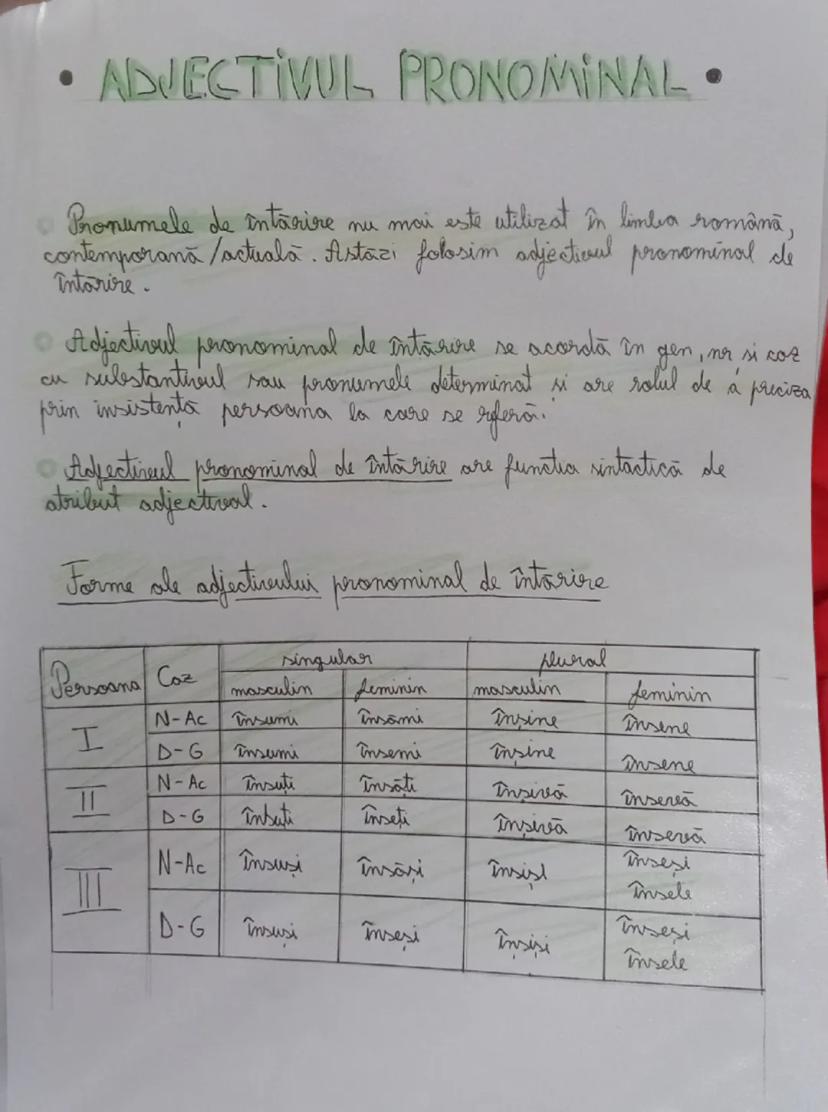 • ADJECTIVUL PRONOMINAL •
Pronumele de întărire nu mai este utilizat în limba română,
contemporană/actuală. Astăzi folosim adjectivul pronominal de
întărire.
Adjectivul pronominal de întărire se acordă în gen, nr și caz
cu substantivul sau pronumele determinat și are rolul de a preciza
prin insistență persoana la care se referă.
Adjectivul pronominal de întărire are functia sintactică de
atribut adjectival.
Forme ale adjectivului pronominal de întărire
Persoana Caz singular plural
masculin feminin masculin feminin
I N-Ac însumi însămi înșine însene
D-G însumi însemi înșine însene
II N-Ac însuți însăți înșivă însevă
D-G însuți înseți înșivă însevă
III N-Ac însuși însăși înșiși înseși
însele
D-G însuși înseși înșiși înseși
însele